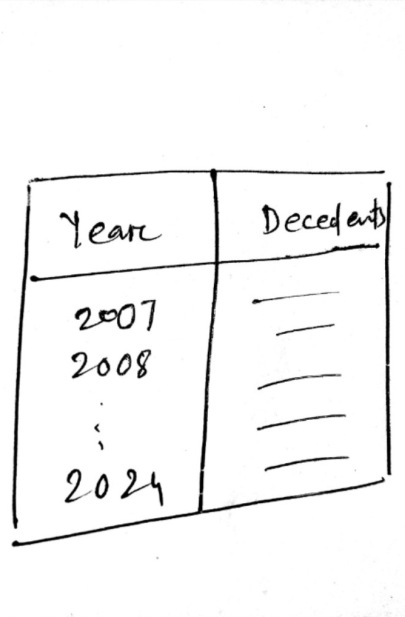 Year Decedents
2007
2008
⋮
2024